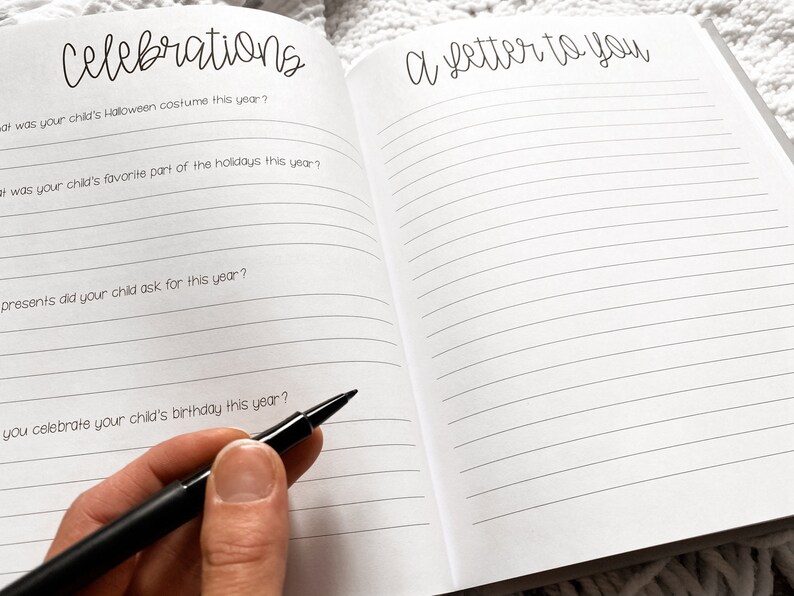 Celebrations
was your child's Halloween costume this year?
was your child's favorite part of the holidays this year?
presents did your child ask for this year?
you celebrate your child's birthday this year?
A Letter to you